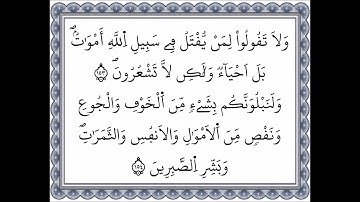 وَلَا تَقُولُواْ لِمَنْ يُّقْتَلُ فِے سَبِيلِ اِ۬للَّهِ أَمْوَٰتُۢۖ
بَلَ اَحْيَآءٞ وَلَٰكِن لَّا تَشْعُرُونَۖ ١٥٣
وَلَنَبْلُوَنَّكُم بِشَےْءٖ مِّنَ اَ۬لْخَوْفِ وَالْجُوعِ
وَنَقْصٖ مِّنَ اَ۬لَامْوَٰلِ وَالَانفُسِ وَالثَّمَرَٰتِۖ
وَبَشِّرِ اِ۬لصَّٰبِرِينَ ١٥٤